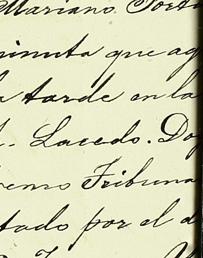 Mariano Forti
minuta que ag
a tarde en la
Lacedo. Do
emo Tribuna
tado por el d